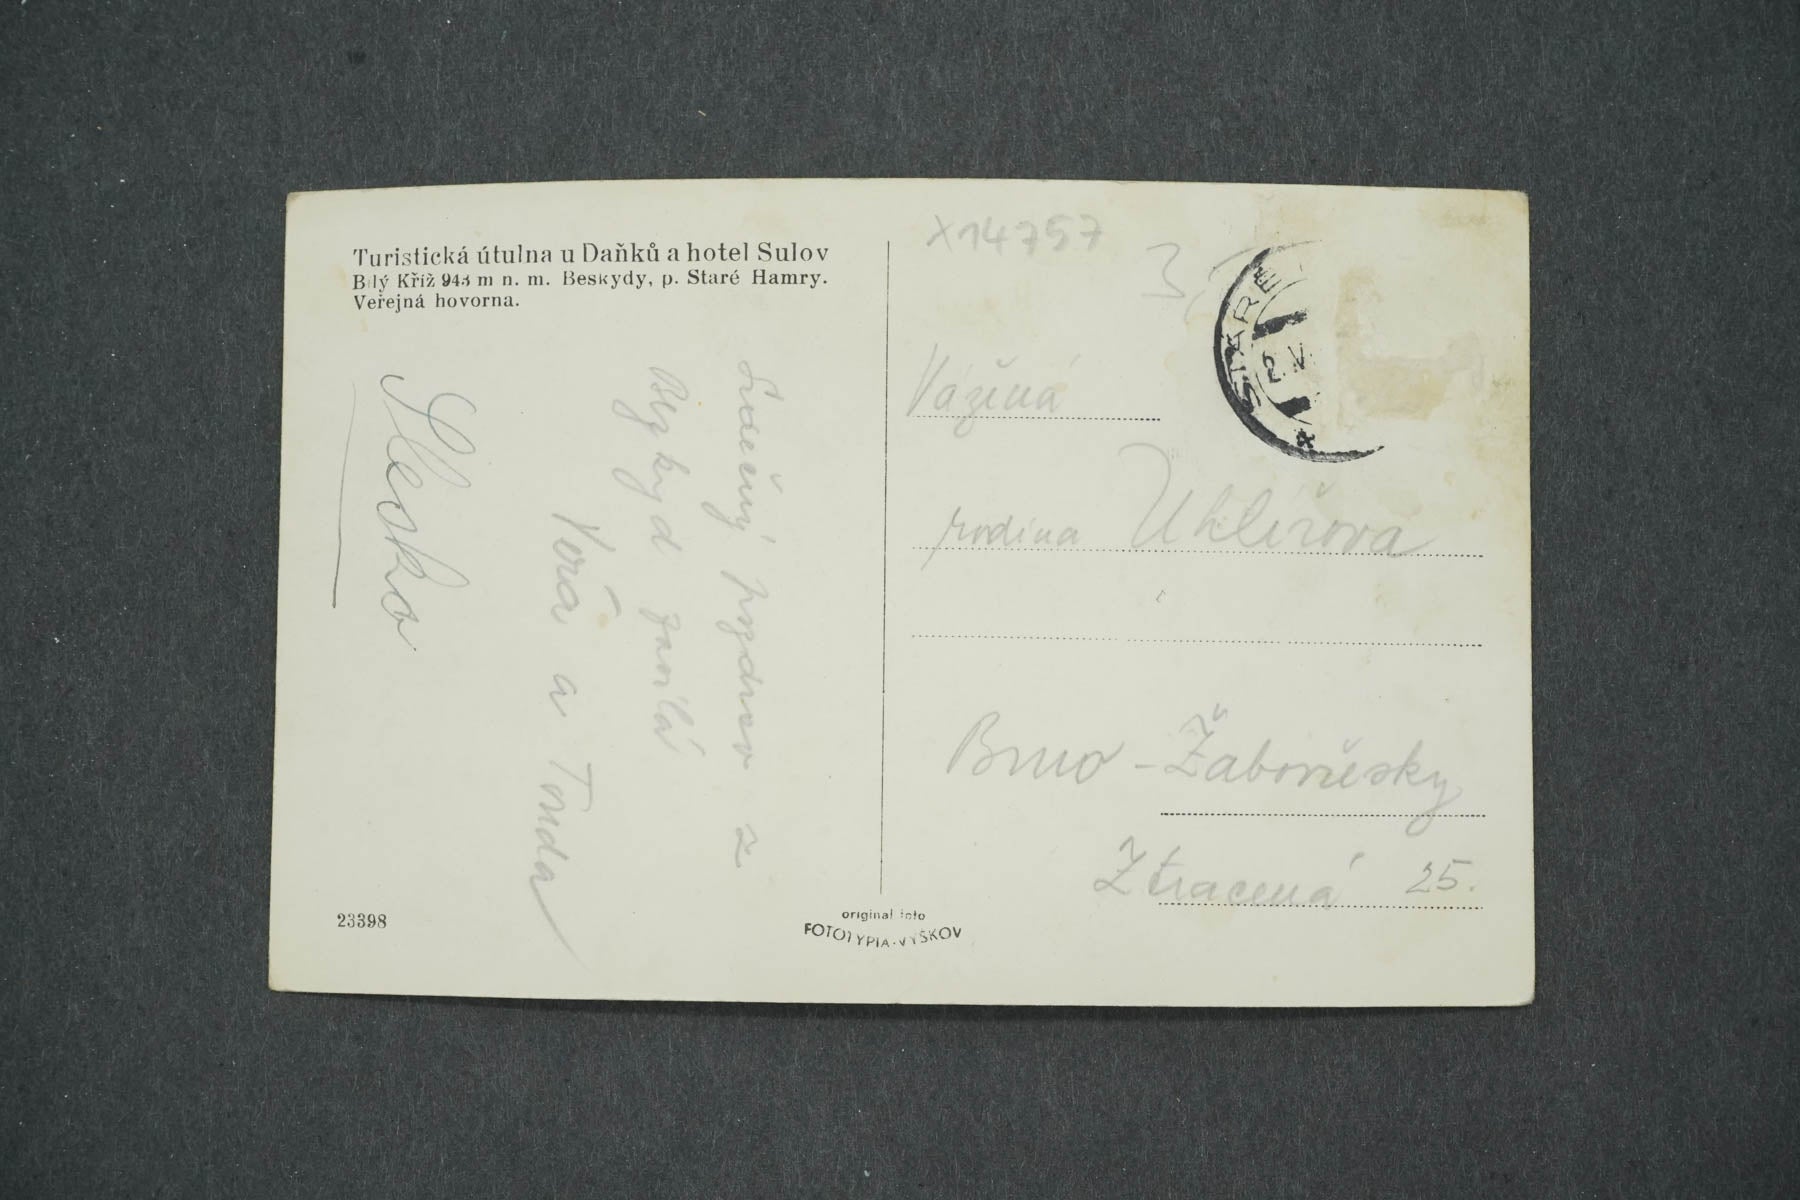 Turistická útulna u Daňků a hotel Sulov
Bílý Kříž 943 m n. m. Beskydy, p. Staré Hamry.
Veřejná hovorna.
Srdečný pozdrav z
Beskyd zasílá
Věra a Tonda
Slesko
23398
original foto
FOTOTYPIA-VYŠKOV
X14757
STARÉ
2. V
Vážená
rodina Uhlířova
Brno - Žabovřesky
Ztracená 25.